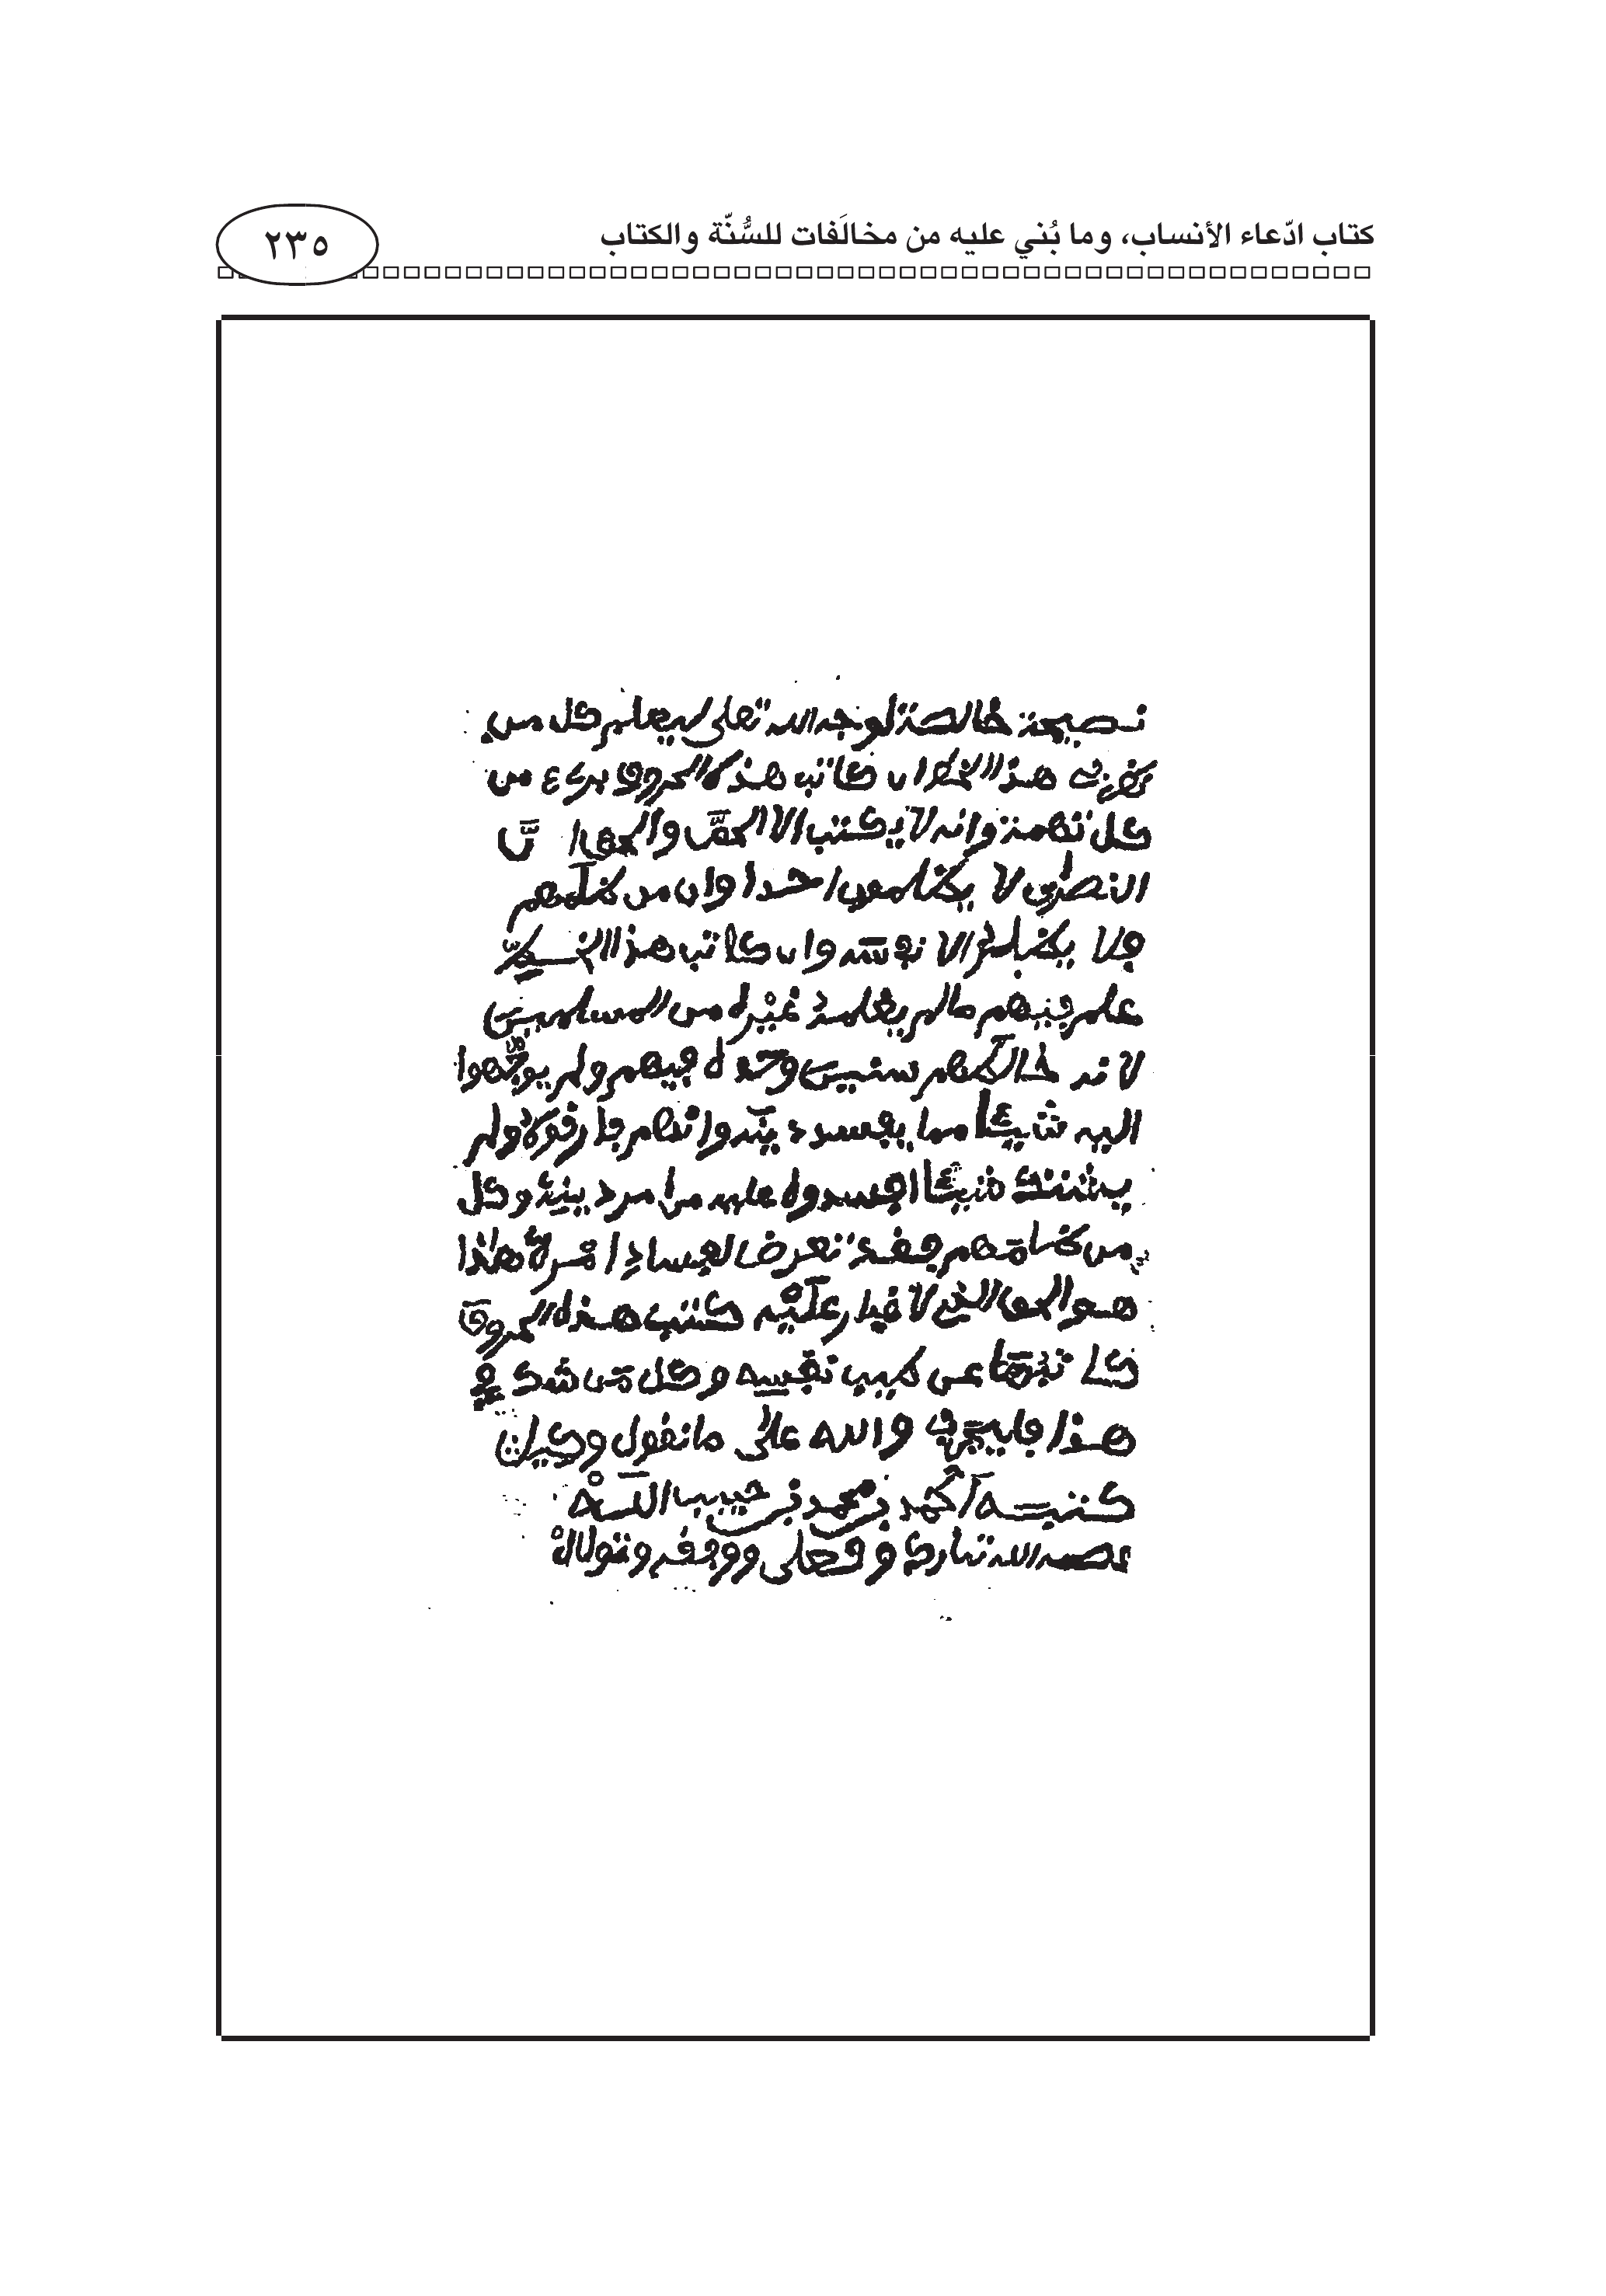 كتاب ادّعاء الأنساب، وما بُني عليه من مخالَفات للسُّنّة والكتاب
٢٣٥
نصيحة خالصة لوجه الله تعلى ليعلم كل من
هذا الخط ان كاتب هذه الحروف برىء من
كل تهمة وانه لا يكتب الا الحق والحق ان
النصارى لا يظلمون احدا وان من
فلا الا نفسه وان كاتب هذا الخط
علم فيهم ما لم يعلمه غيره من المسلمين
لانه خالطهم سنين وحده فيهم ولم يوجهوا
اليه شيئا مما يفسد دينه وانهم فارقوه ولم
شيئا افسدوه عليه من امر دينه وكل
من فقد تعرض لفساد امره هذا
هو الحق الذي لا غبار عليه كتب هذه الحروف
كاتبها عن طيب نفسه وكل من شك في
هذا فليجرب والله على ما نقول وكيل
كتبه أحمد بن محمد بن حبيب الله
عصمه الله تبارك وتعلى ووفقه وتولاه